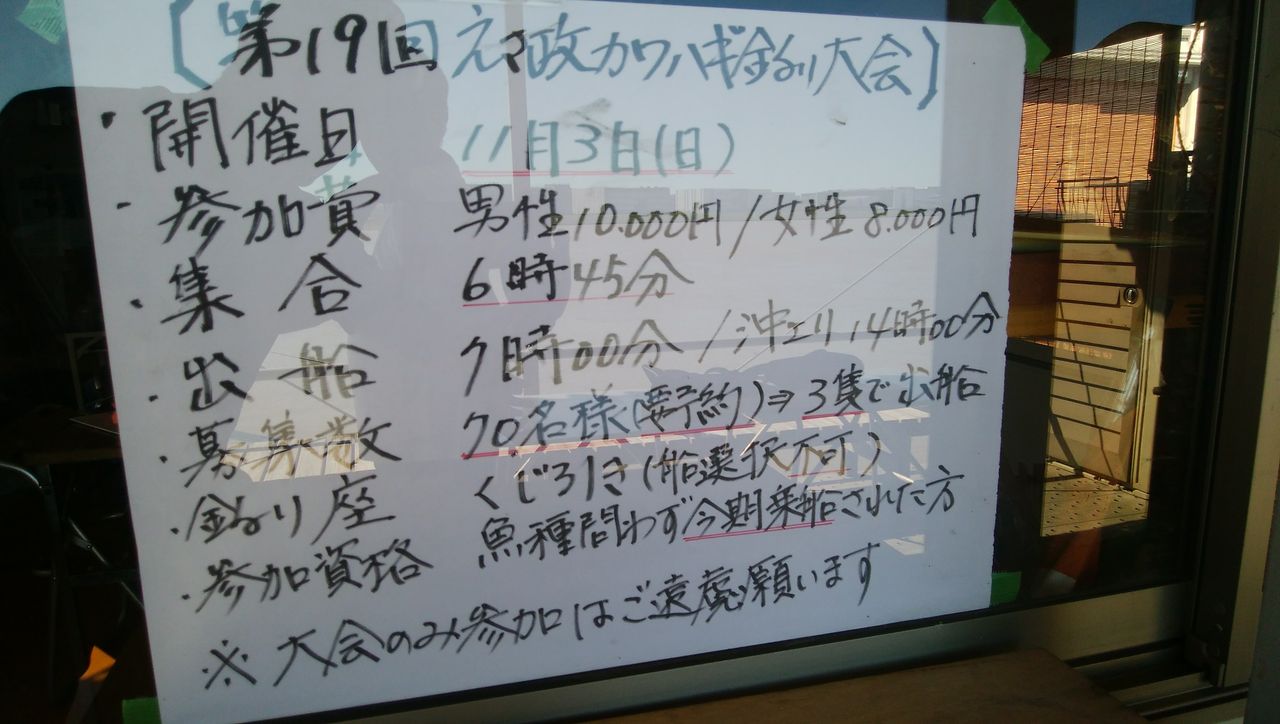 [第19回 えさ政カワハギ釣り大会]
・開催日 11月3日(日)
・参加費 男性10.000円/女性8.000円
・集合 6時45分
・出船 7時00分/沖上り14時00分
・募集数 70名様(要予約)⇒3隻で出船
・釣り座 くじ引き(船選択不可)
・参加資格 魚種問わず今期乗船された方
※大会のみ参加はご遠慮願います